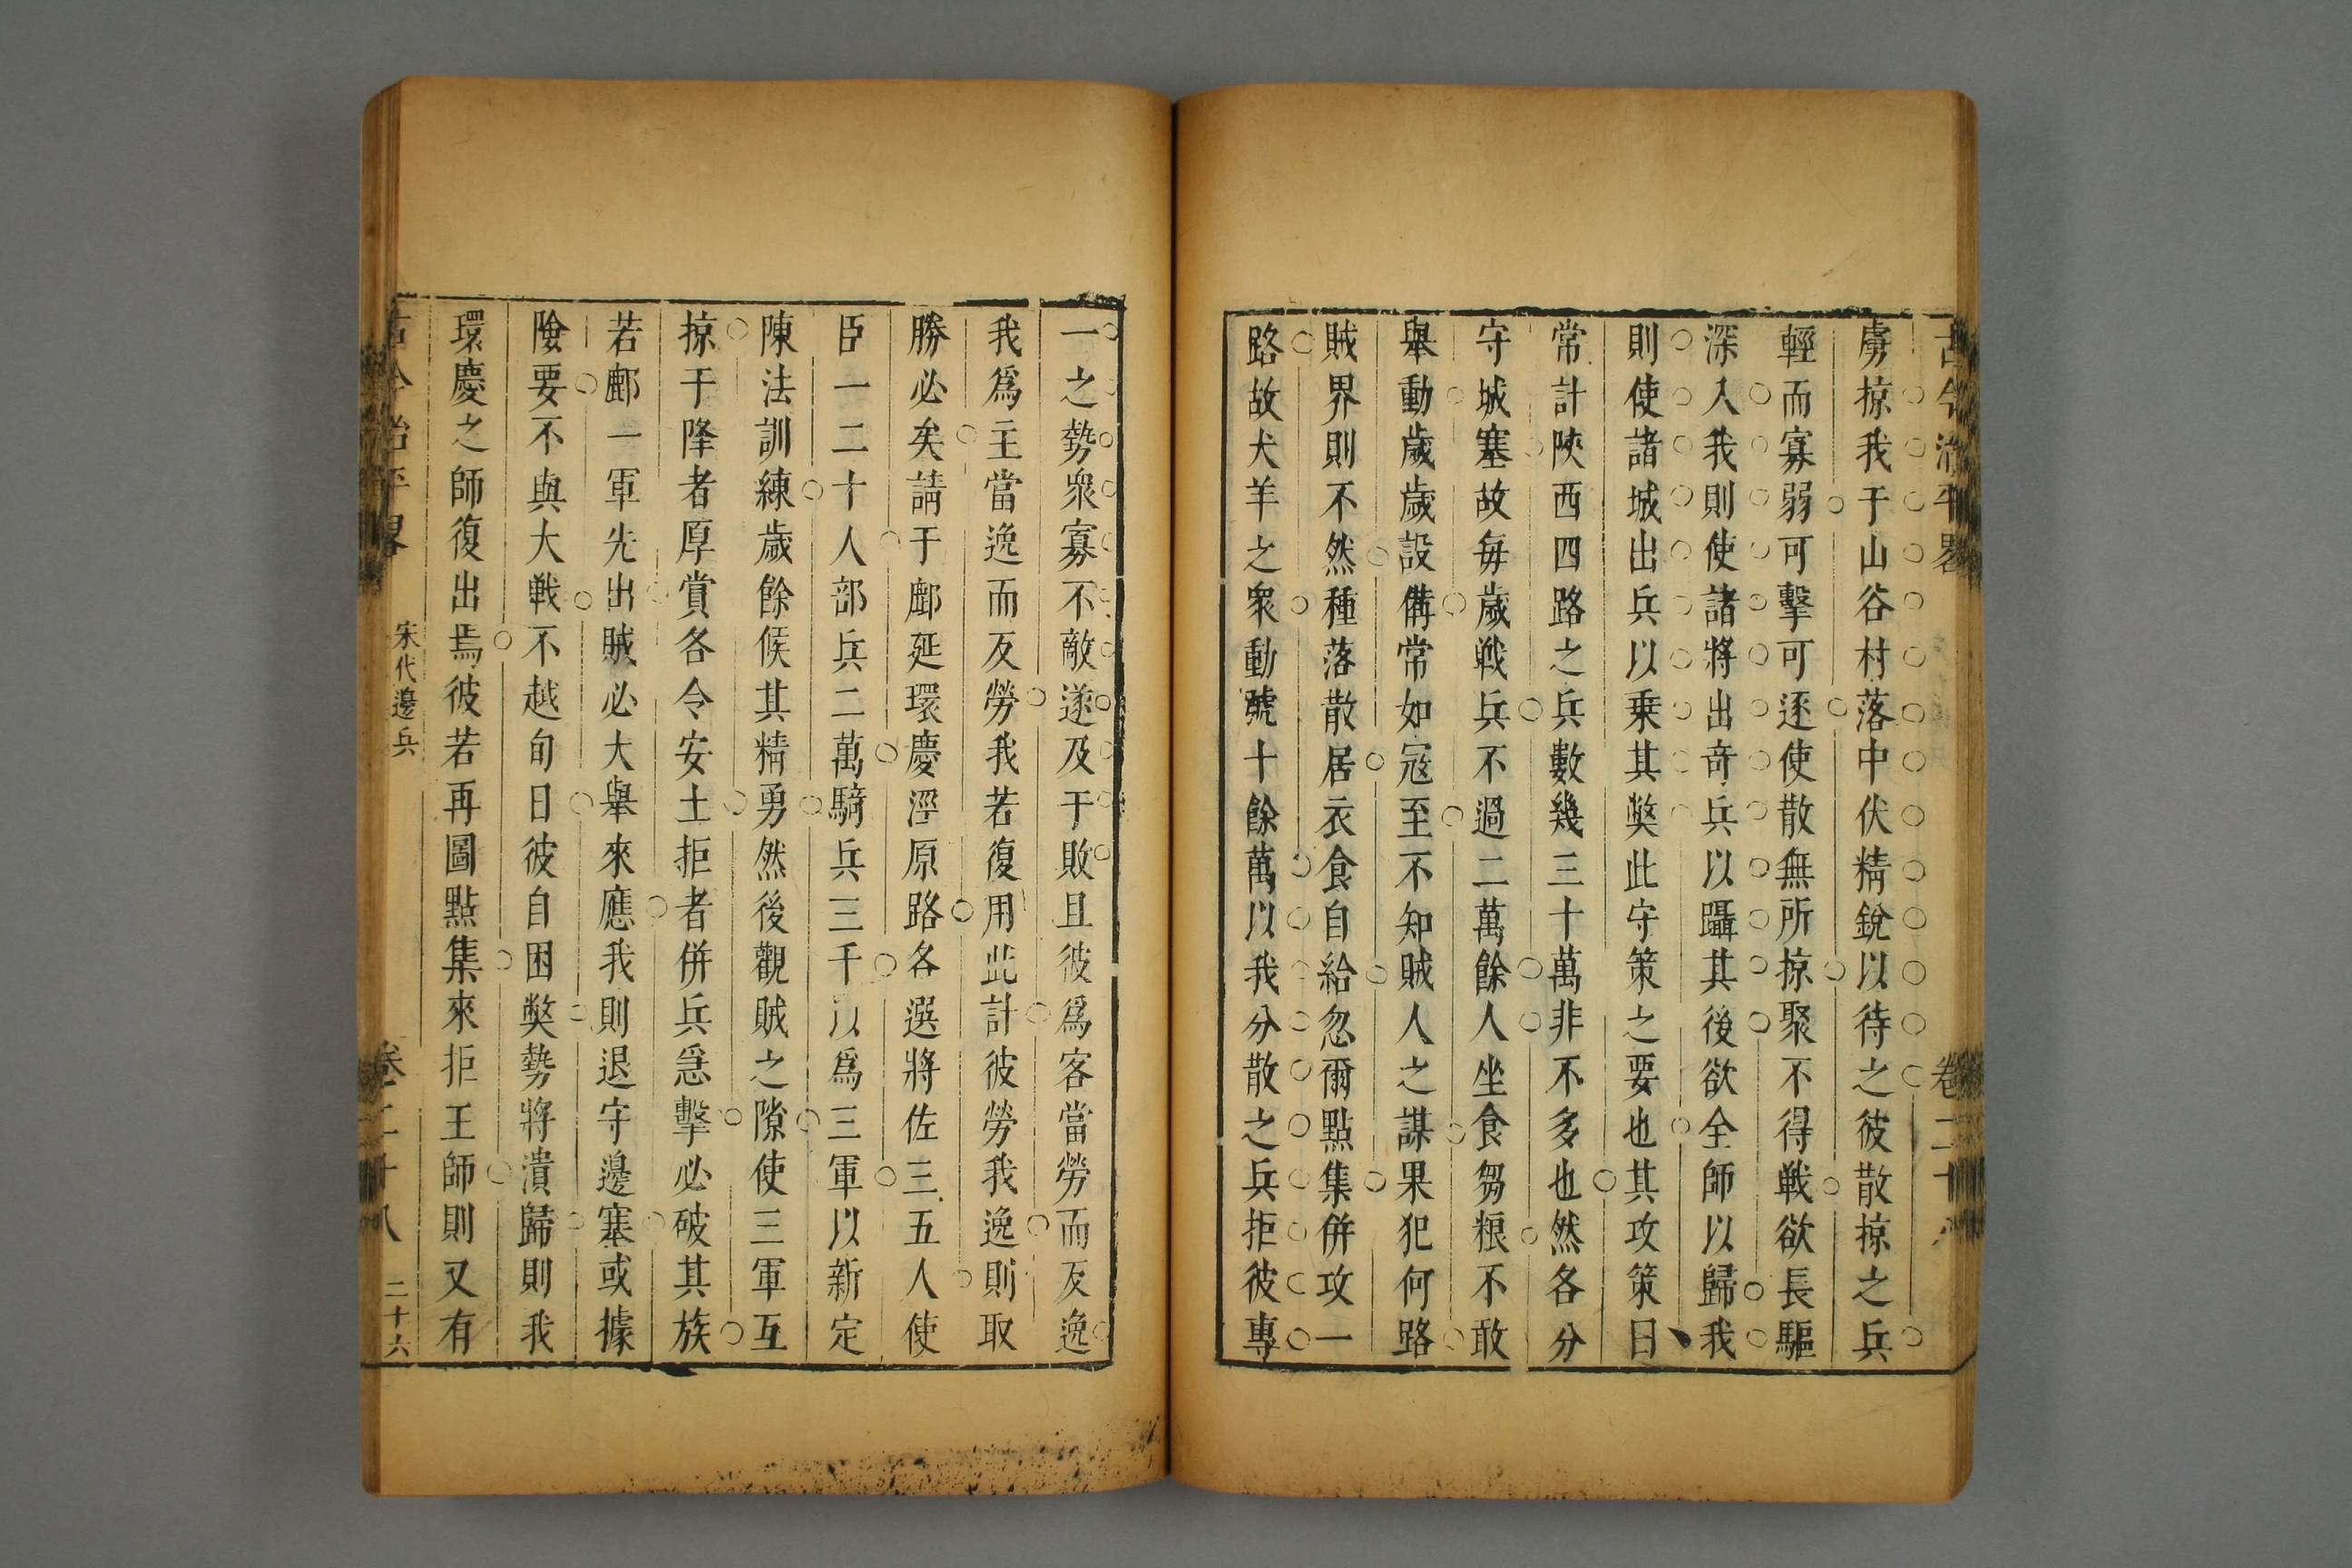 古今治平畧 卷二十八
虜掠我于山谷村落中伏精銳以待之彼散掠之兵
輕而寡弱可擊可逐使散無所掠聚不得戰欲長驅
深入我則使諸將出竒兵以躡其後欲全師以歸我
則使諸城出兵以乗其獘此守策之要也其攻策曰
常計陜西四路之兵數幾三十萬非不多也然各分
守城塞故每歲戰兵不過二萬餘人坐食芻粮不敢
舉動歲歲設備常如冦至不知賊人之謀果犯何路
賊界則不然種落散居衣食自給忽爾點集併攻一
路故犬羊之衆動號十餘萬以我分散之兵拒彼專
一之勢衆寡不敵遂及于敗且彼爲客當勞而反逸
我爲主當逸而反勞我若復用此計彼勞我逸則取
勝必矣請于鄜延環慶涇原路各選將佐三五人使
臣一二十人部兵二萬騎兵三千以爲三軍以新定
陳法訓練歲餘候其精勇然後觀賊之隙使三軍互
掠于降者厚賞各令安土拒者併兵急擊必破其族
若鄜一軍先出賊必大舉來應我則退守邊塞或據
險要不與大戰不越旬日彼自困獘勢將潰歸則我
環慶之師復出焉彼若再圖點集來拒王師則又有
古今治平畧 宋代邊兵 卷二十八 二十六